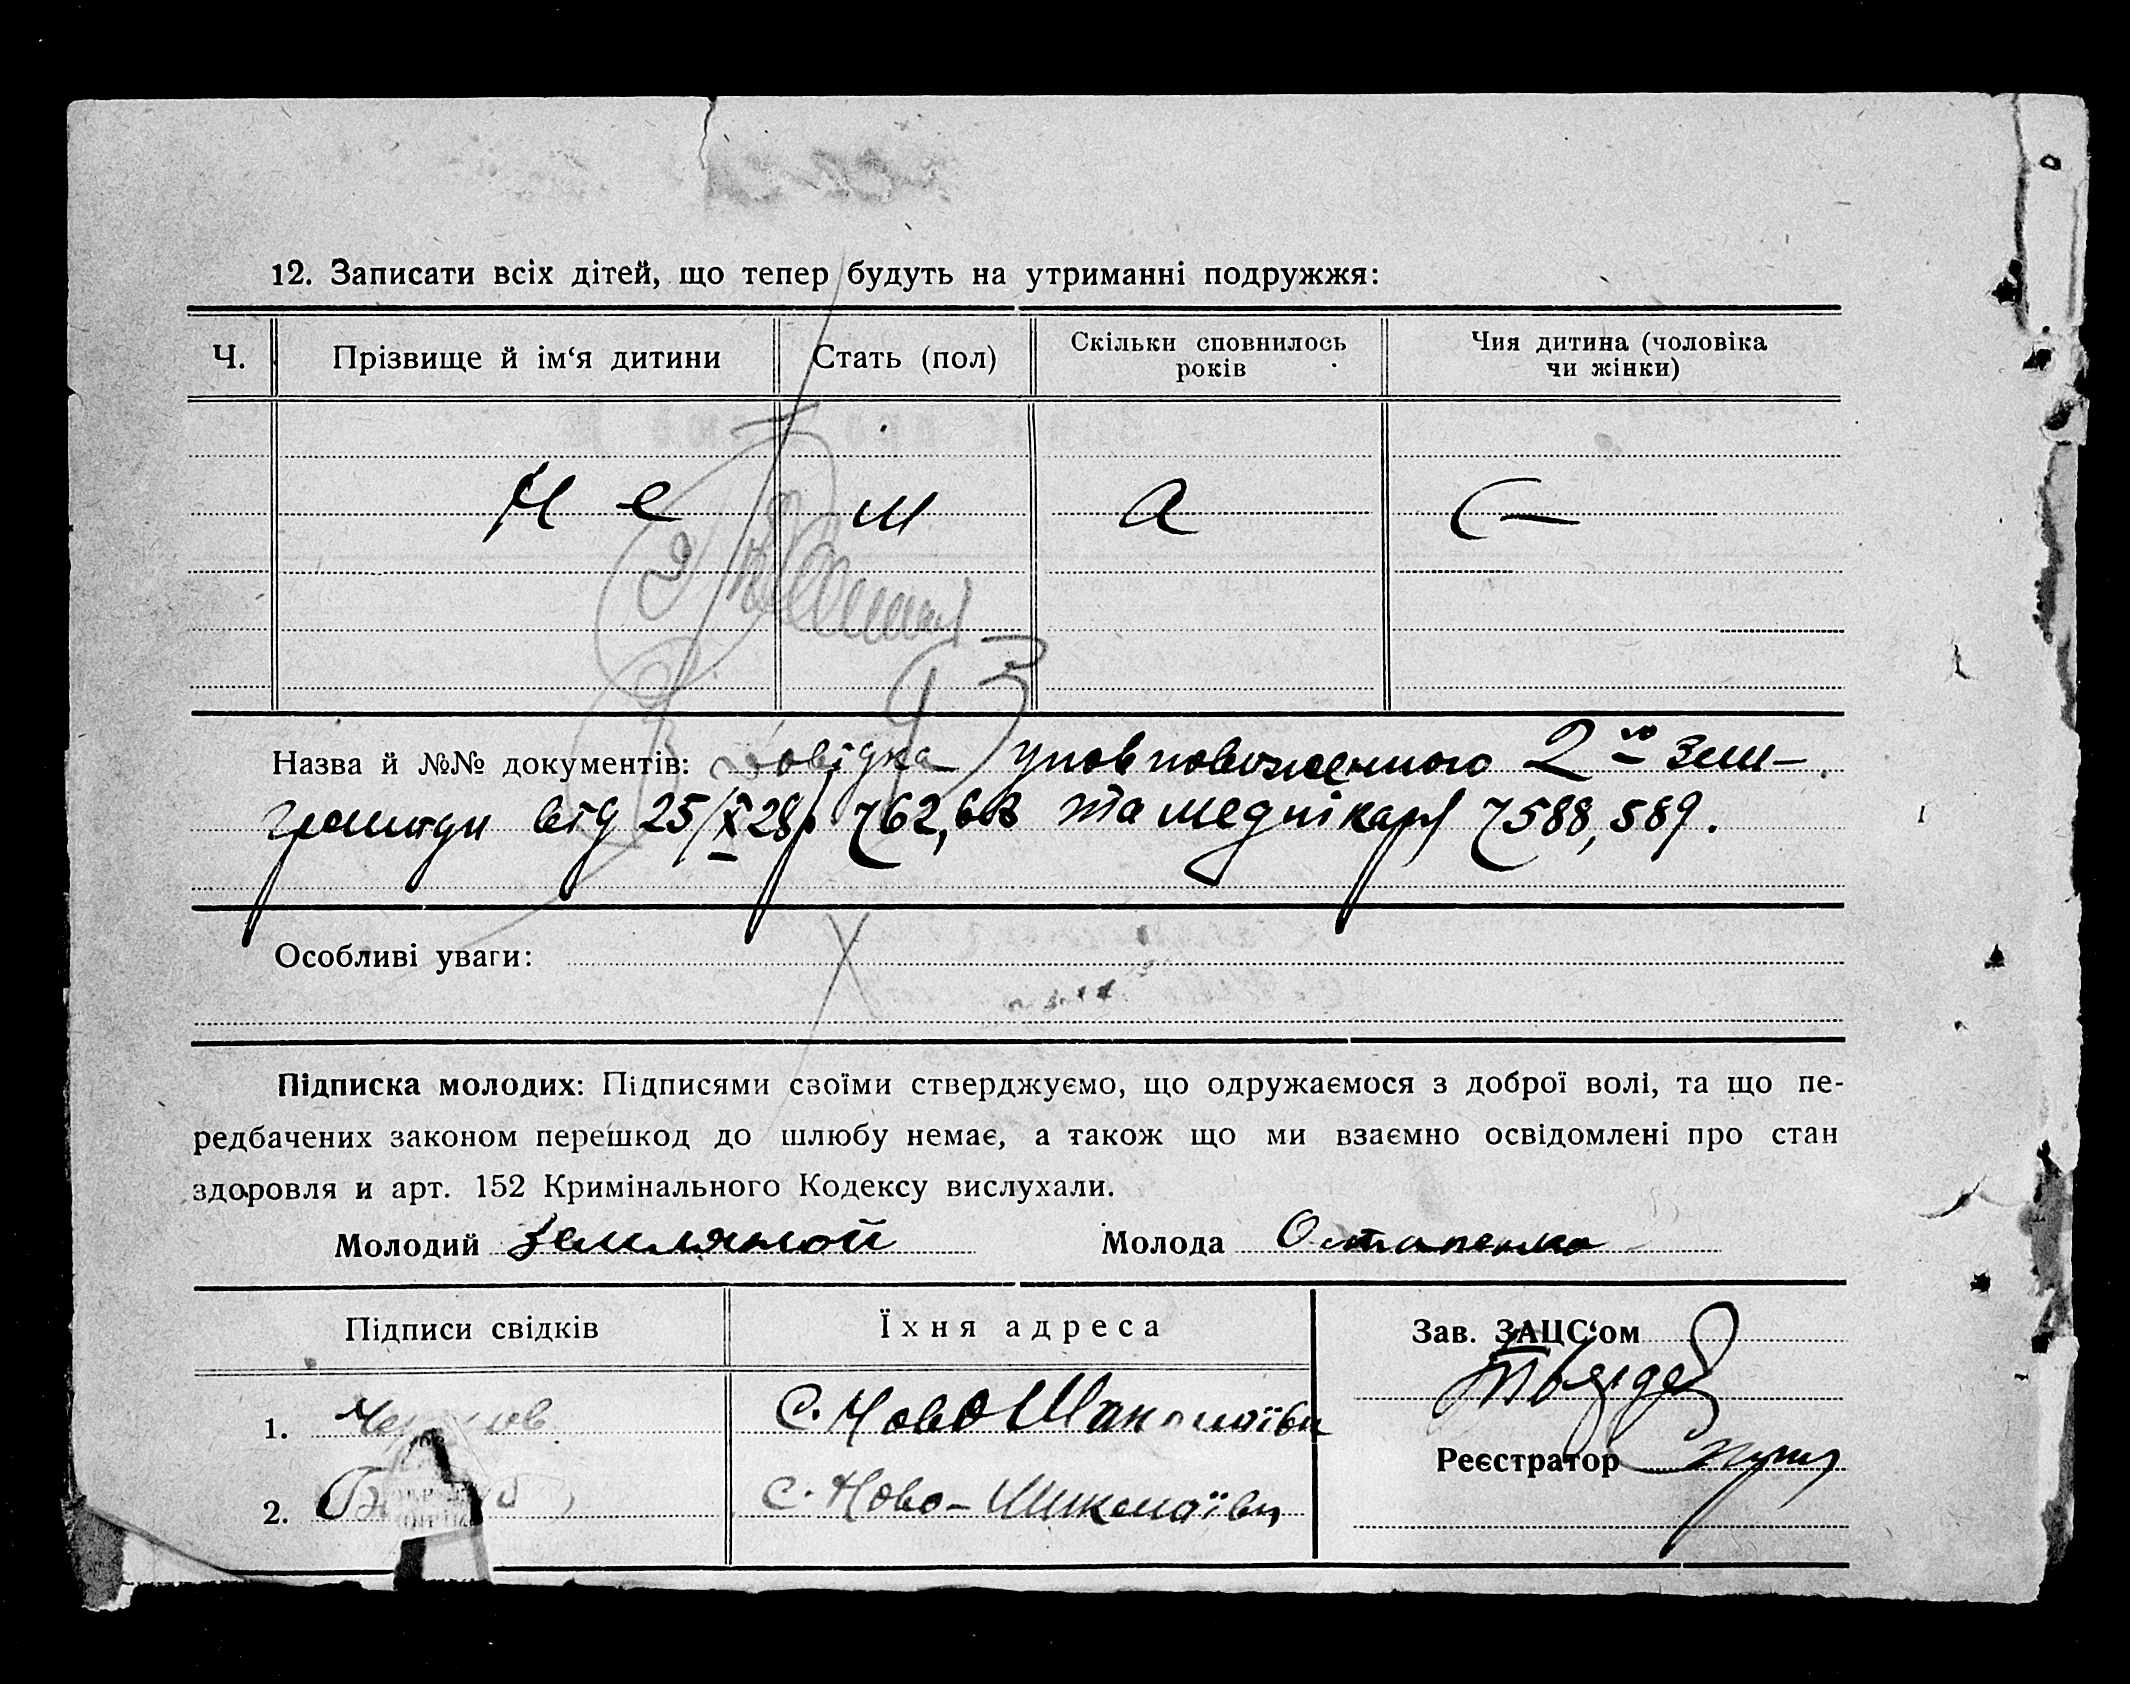 12. Записати всіх дітей, що тепер будуть на утриманні подружжя:
Ч. Прізвище й ім‘я дитини Стать (пол) Скільки сповнилось років Чия дитина (чоловіка чи жінки)
Н е м а
Назва й №№ документів: Довідка уповноваженного 2го Зем-
громади від 25/X 28р 762, та медпікарт 7588, 589.
Особливі уваги:
Підписка молодих: Підписями своїми стверджуємо, що одружаємося з доброї волі, та що пе-
редбачених законом перешкод до шлюбу немає, а також що ми взаємно освідомлені про стан
здоровля и арт. 152 Кримінального Кодексу вислухали.
Молодий Земляной Молода Остапенко
Підписи свідків Їхня адреса Зав. ЗАЦС‘ом
1. С. Ново
Реєстратор
2. С. Ново-Миколаївц